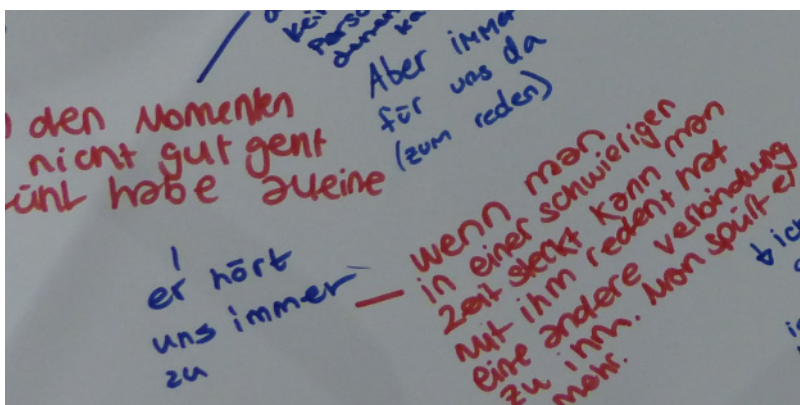 kein
Perso
denen
ka
Aber immer
für uns da
(zum reden)
den Momenten
nicht gut geht
ühl habe alleine
er hört
uns immer
zu
wenn man
in einer schwierigen
Zeit steckt kann man
mit ihm reden hat
eine andere verbindung
zu ihm. Man spürt er
mehr.
ich